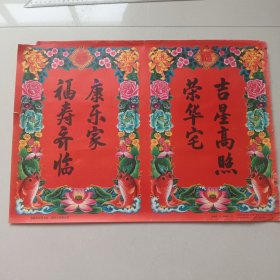 吉星高照
荣华宅
康乐家
福寿齐临